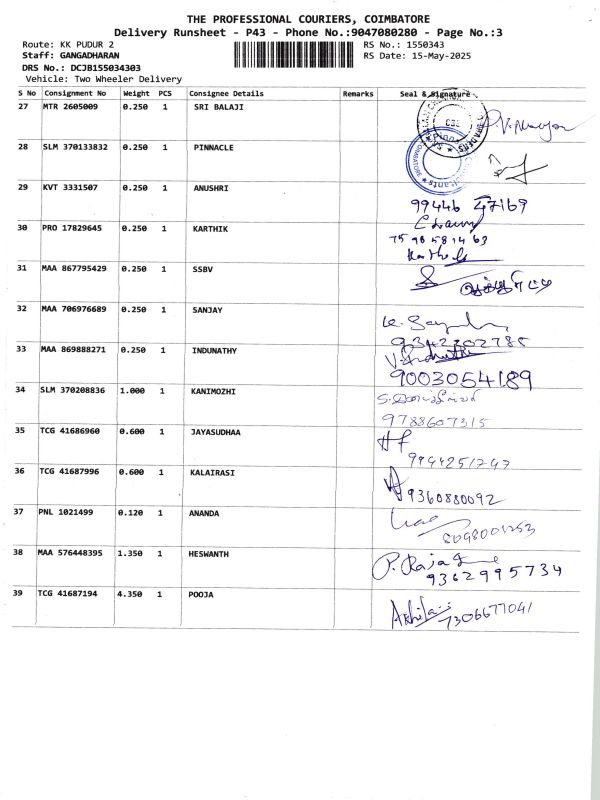 THE PROFESSIONAL COURIERS, COIMBATORE
Delivery Runsheet - P43 - Phone No.:9047080280 - Page No.:3
Route: KK PUDUR 2 RS No.: 1550343
Staff: GANGADHARAN RS Date: 15-May-2025
DRS No.: DCJB155034303
Vehicle: Two Wheeler Delivery
S No Consignment No Weight PCS Consignee Details Remarks Seal & Signature
27 MTR 2605009 0.250 1 SRI BALAJI
28 SLM 370133832 0.250 1 PINNACLE
29 KVT 3331507 0.250 1 ANUSHRI
99446 47169
30 PRO 17829645 0.250 1 KARTHIK
75 98 581463
31 MAA 867795429 0.250 1 SSBV
32 MAA 706976689 0.250 1 SANJAY
9342302785
33 MAA 869888271 0.250 1 INDUNATHY
9003054189
34 SLM 370208836 1.000 1 KANIMOZHI
9788607315
35 TCG 41686960 0.600 1 JAYASUDHAA
9994251747
36 TCG 41687996 0.600 1 KALAIRASI
9360880092
37 PNL 1021499 0.120 1 ANANDA
8098001253
38 MAA 576448395 1.350 1 HESWANTH
P. Raja
9362995734
39 TCG 41687194 4.350 1 POOJA
Akhila
7306677041